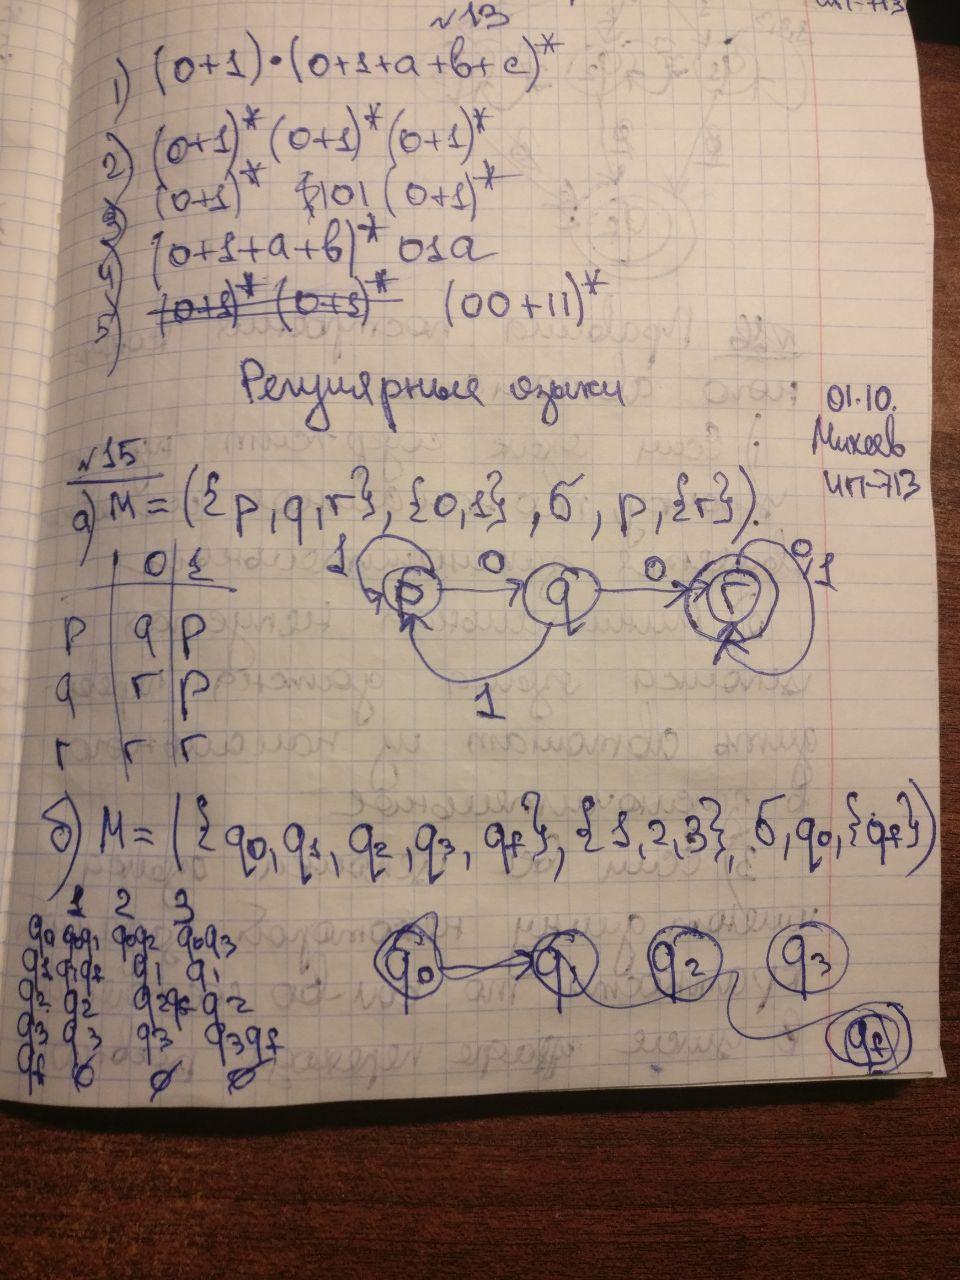 №13
ИП-713
1) (0+1)•(0+1+a+b+c)*
2) (0+1)*(0+1)*(0+1)*
3) (0+1)* 101 (0+1)*
4) (0+1+a+b)* 01a
5) (0+1)* (0+1)* (00+11)*
Регулярные языки
01.10.
Михеев
ИП-713
№15
а) M = ({p,q,r},{0,1},б,p,{r}).
0 1
p q p
q r p
r r r
1 p 0 q 0 r 0,1
1
б) M = ({q0,q1,q2,q3,qf},{1,2,3},б,q0,{qf})
1 2 3
q0 q0q1 q0q2 q0q3
q1 q1qf q1 q1
q2 q2 q2qf q2
q3 q3 q3 q3qf
qf ∅ ∅ ∅
q0 q1 q2 q3
qf